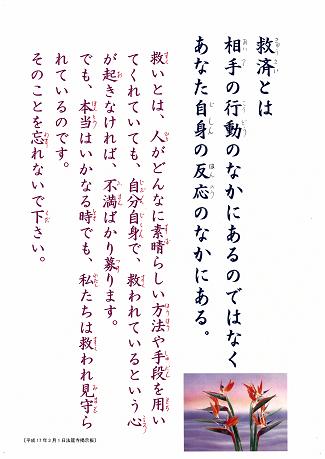 救済とは
相手の行動のなかにあるのではなく
あなた自身の反応のなかにある。
救いとは、人がどんなに素晴らしい方法や手段を用い
てくれていても、自分自身で、救われているという心
が起きなければ、不満ばかり募ります。
でも、本当はいかなる時でも、私たちは救われ見守ら
れているのです。
そのことを忘れないで下さい。
(平成17年3月1日法龍寺掲示板)